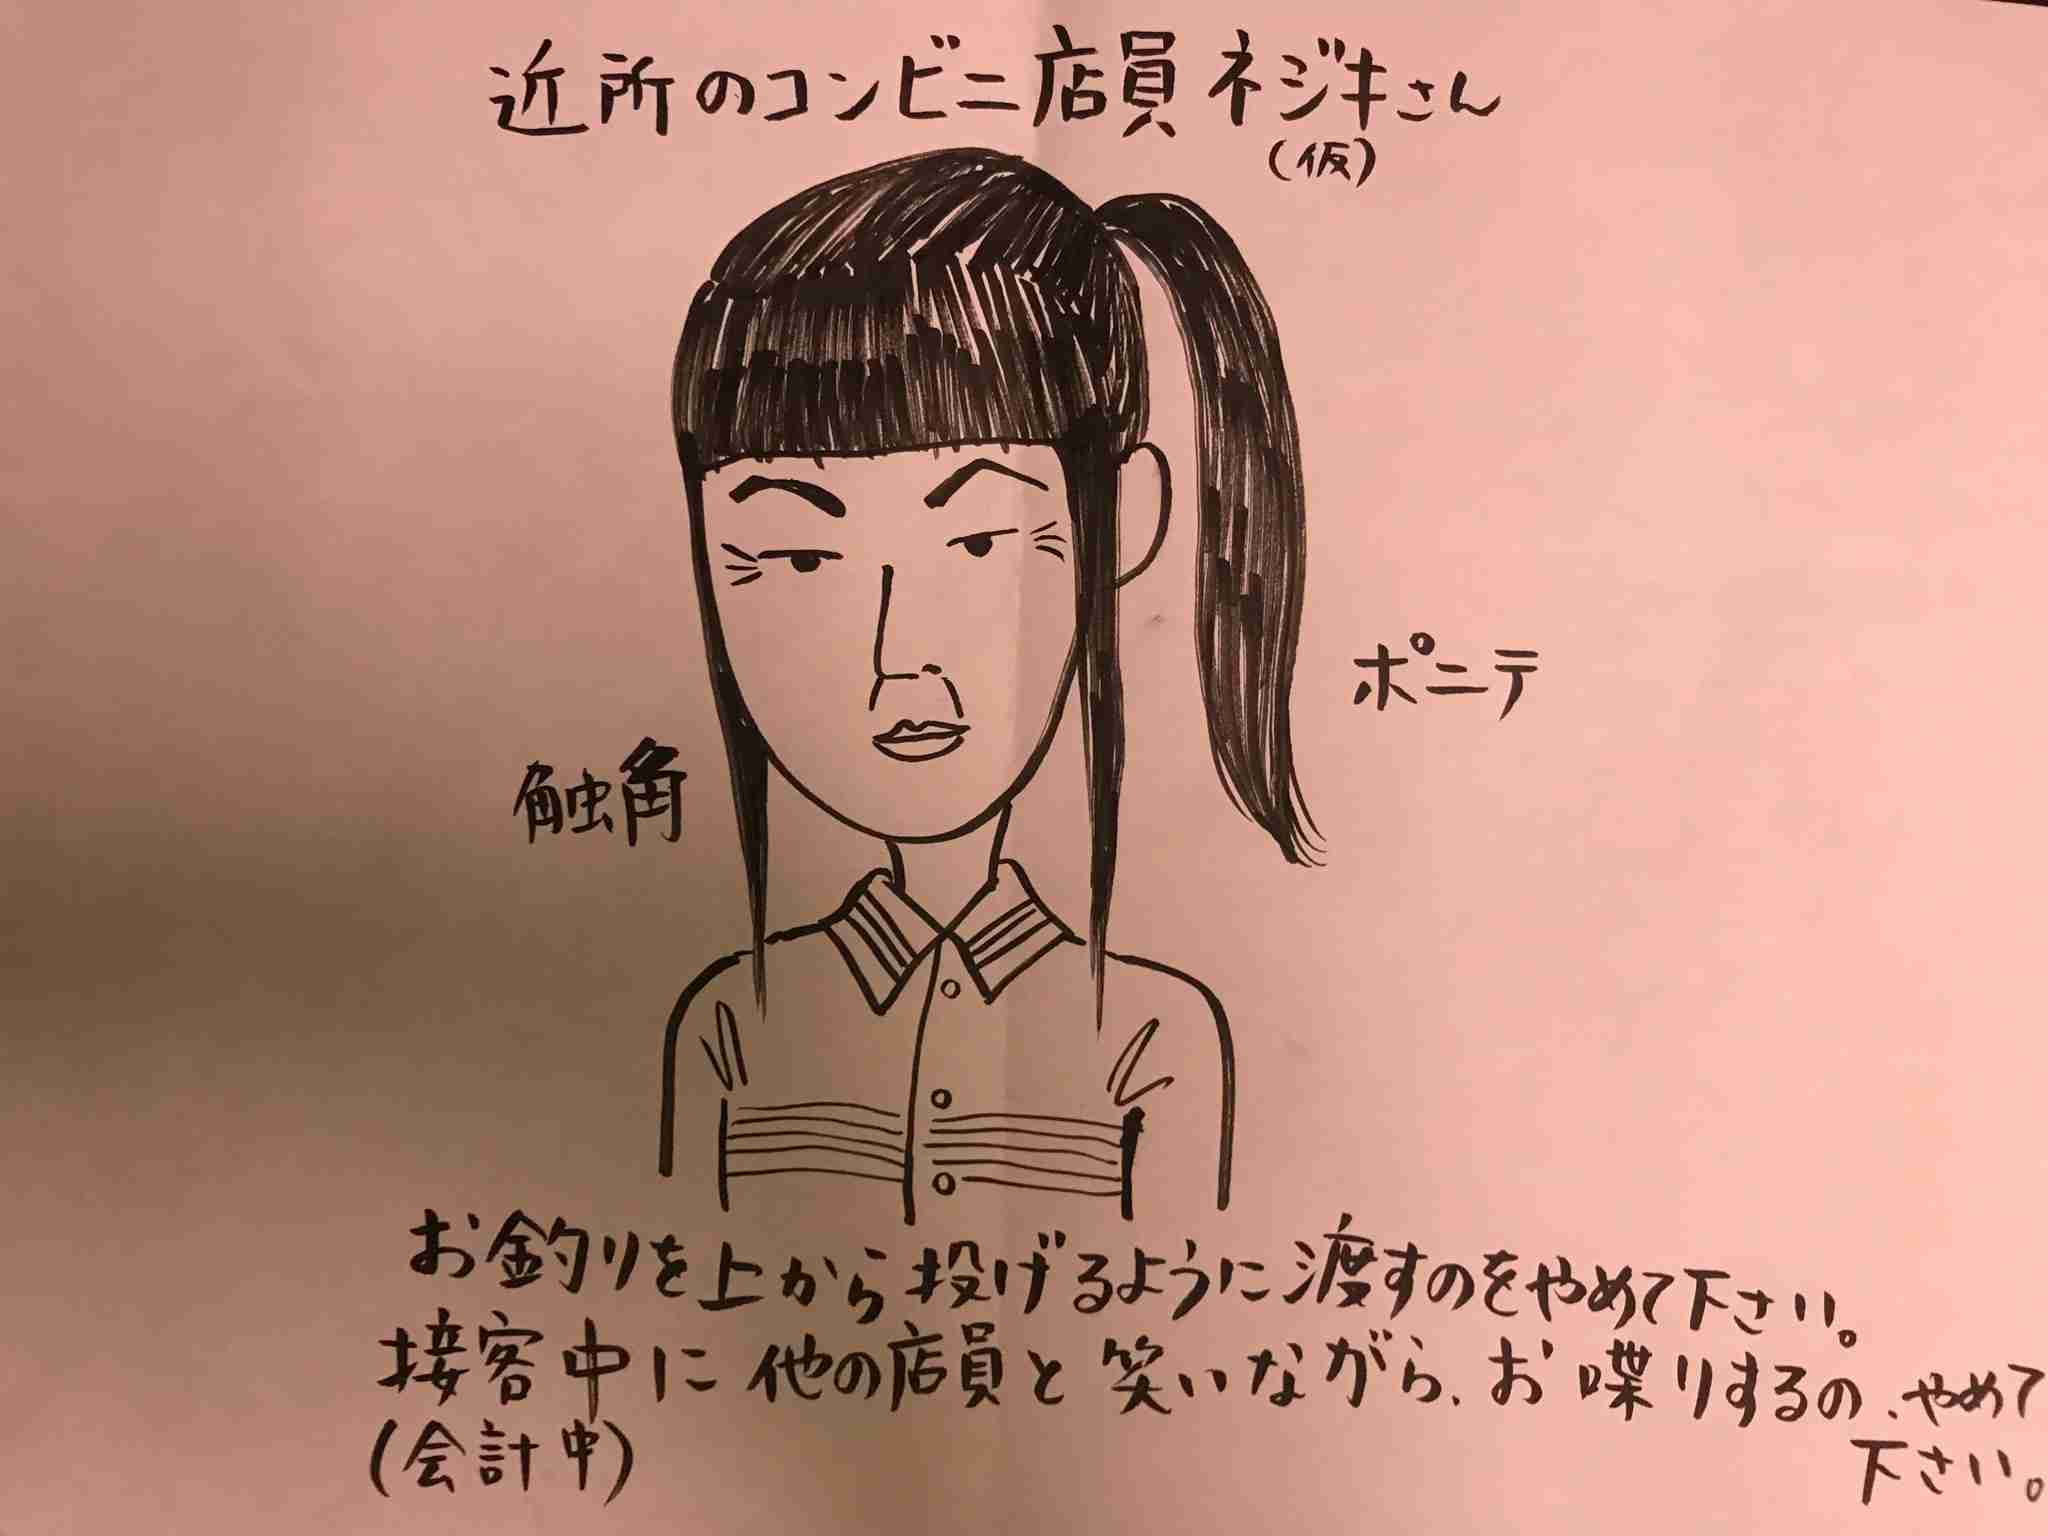 近所のコンビニ店員ネジキさん
(仮)
ポニテ
触角
お釣りを上から投げるように渡すのをやめて下さい。
接客中に他の店員と笑いながら、お喋りするの、やめて
(会計中)
下さい。